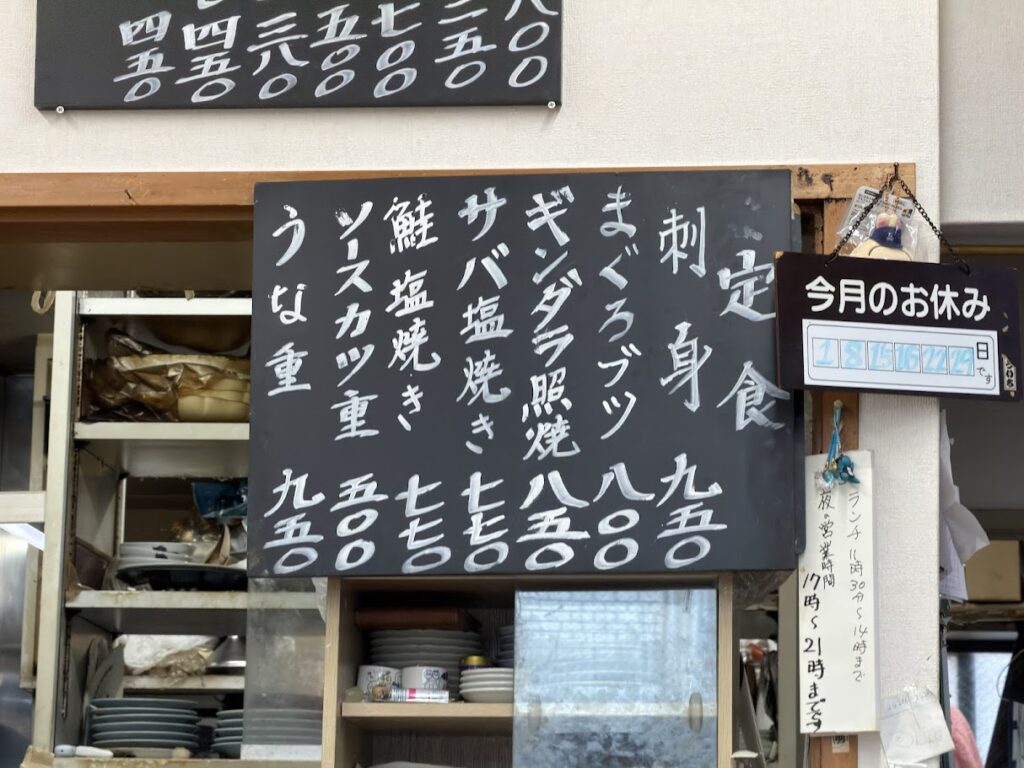 四五〇
四五〇
三八〇
五〇〇
七〇〇
二五〇
八〇〇
定食
刺身 九五〇
まぐろブツ 八〇〇
ギンダラ照焼 八五〇
サバ塩焼き 七七〇
鮭塩焼き 七七〇
ソースカツ重 五〇〇
うな重 九五〇
今月のお休み
1 8 15 16 22 29 日です
ランチ 11時30分～14時まで
夜の営業時間
17時～21時までです